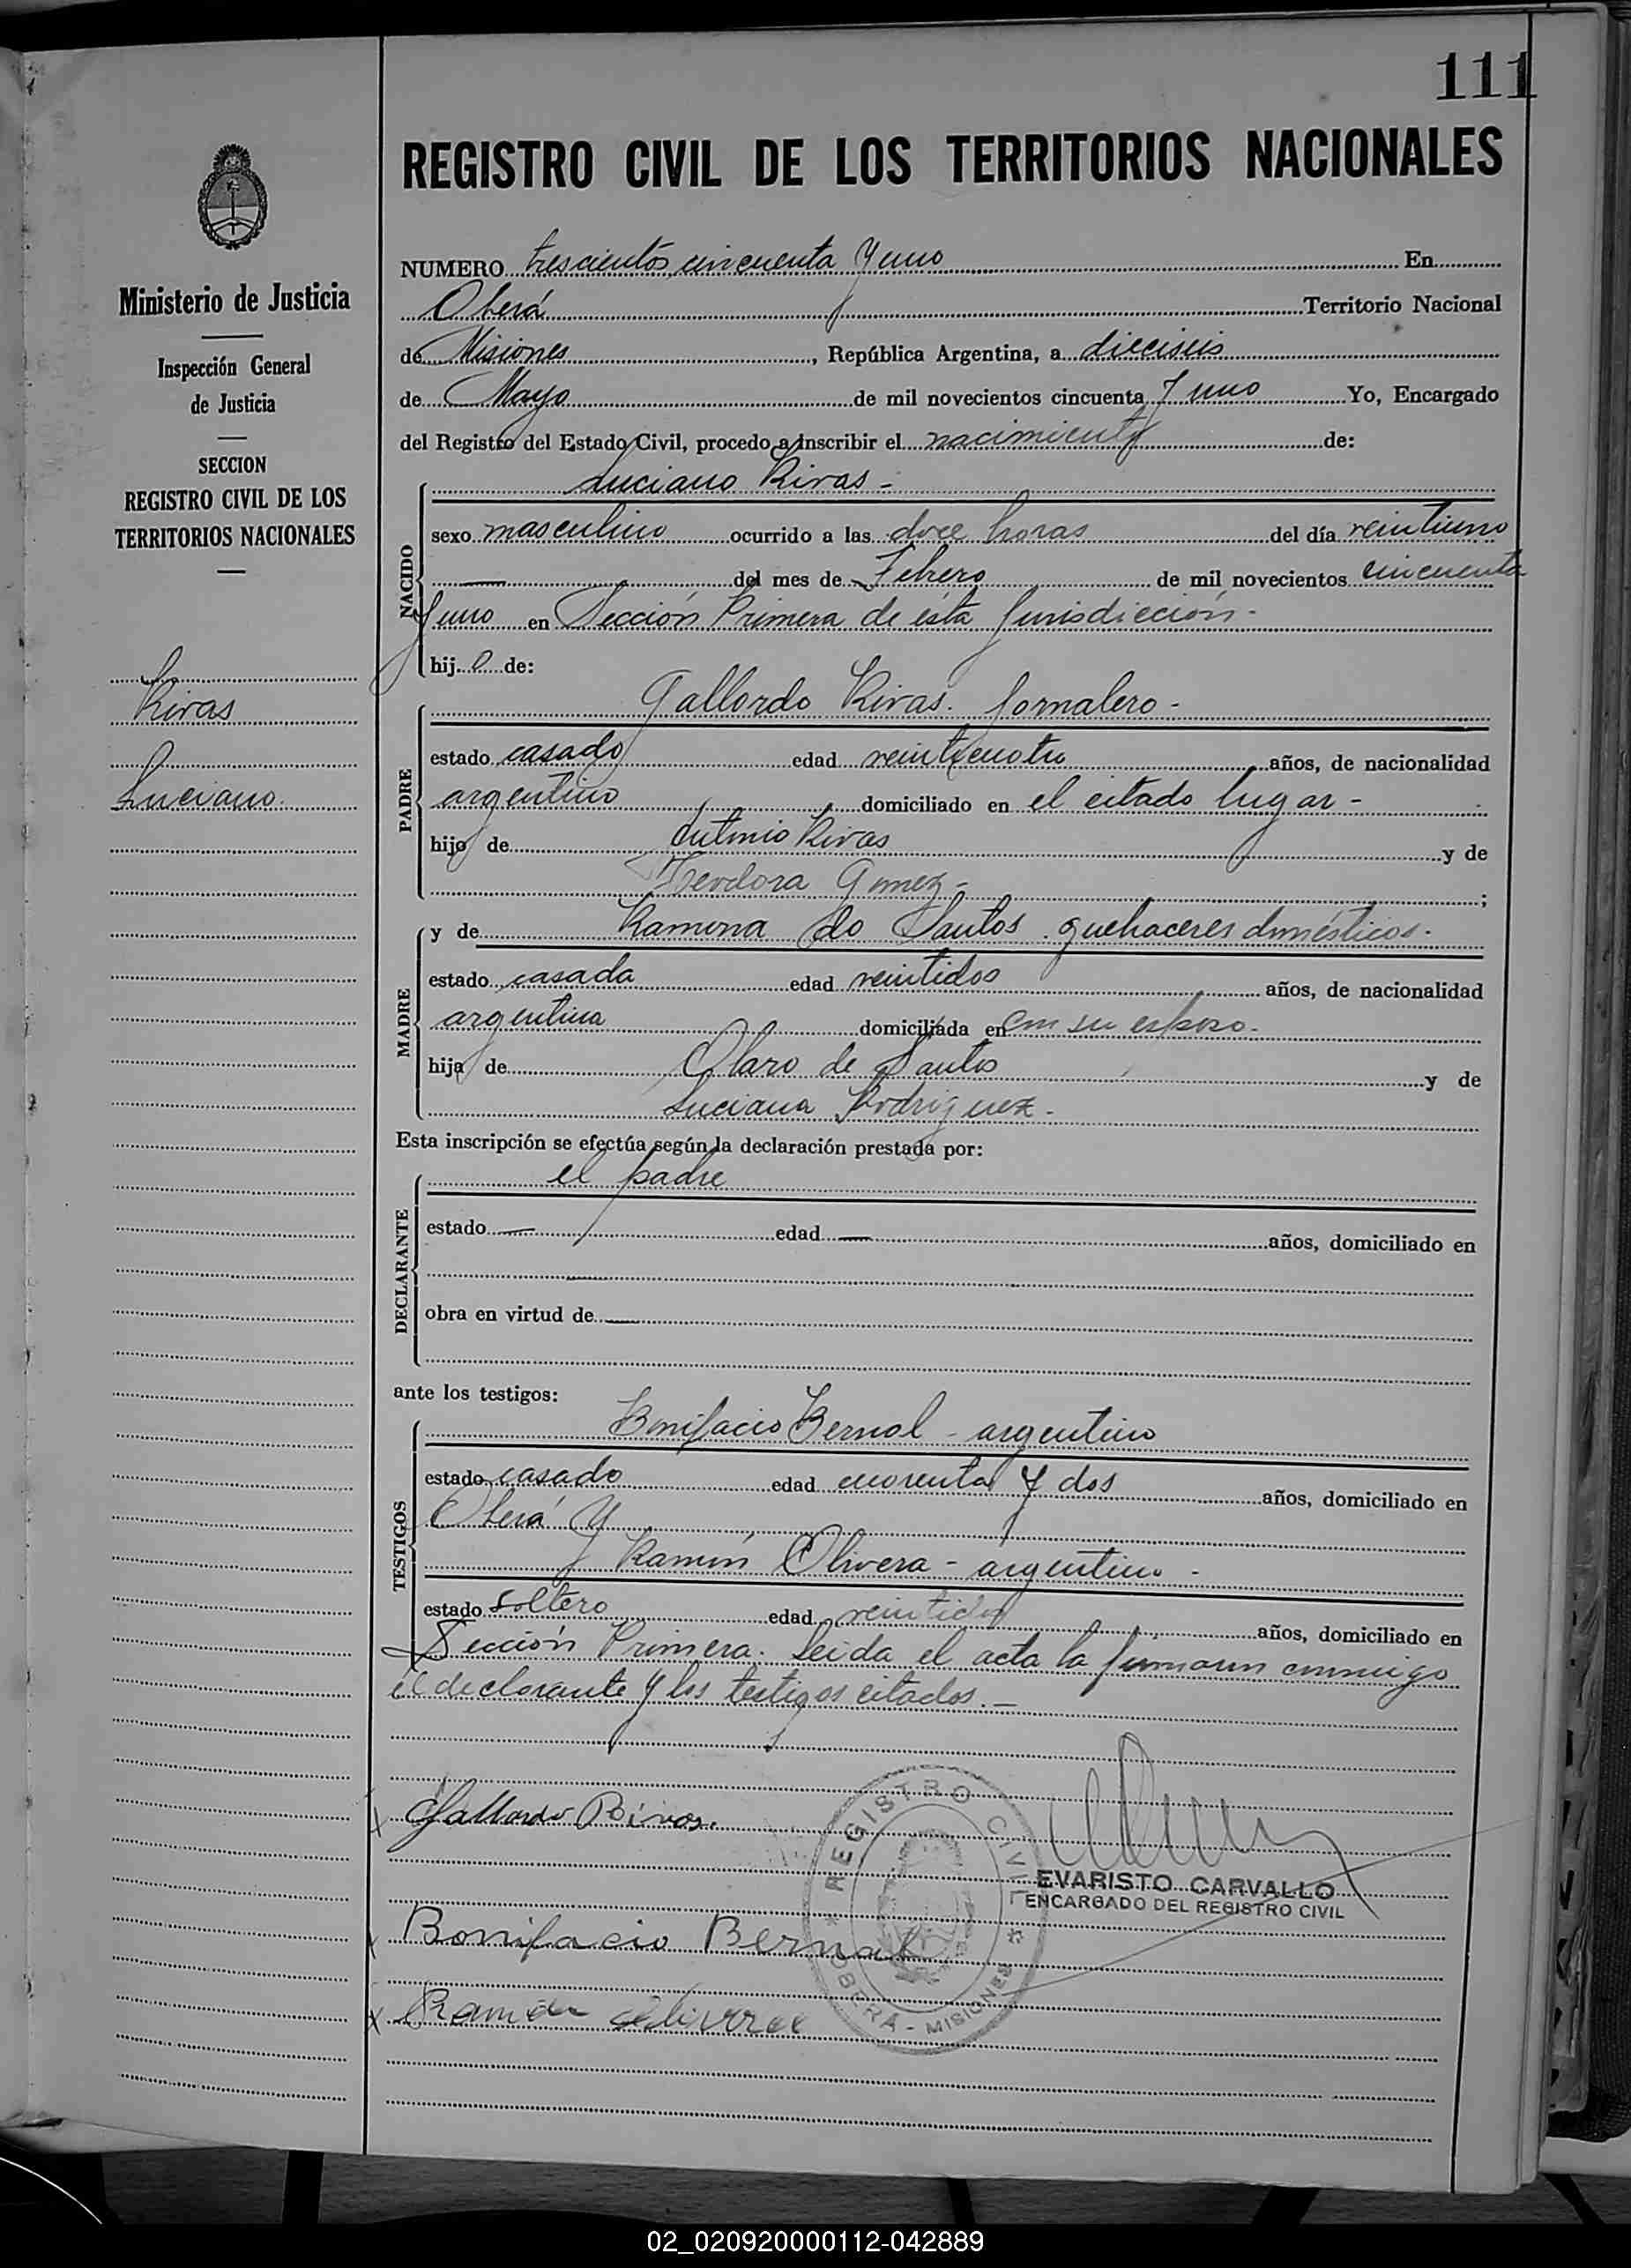 111
REGISTRO CIVIL DE LOS TERRITORIOS NACIONALES
Ministerio de Justicia
Inspección General
de Justicia
SECCION
REGISTRO CIVIL DE LOS
TERRITORIOS NACIONALES
Rivas
Luciano
NUMERO trescientos cincuenta y uno En
Oberá Territorio Nacional
de Misiones, República Argentina, a dieciseis
de Mayo de mil novecientos cincuenta y uno Yo, Encargado
del Registro del Estado Civil, procedo a inscribir el nacimiento de:
NACIDO
Luciano Rivas -
sexo masculino ocurrido a las doce horas del día veintiuno
— del mes de Febrero de mil novecientos cincuenta
y uno en Sección Primera de ésta Jurisdicción -
hijo de:
PADRE
Gallardo Rivas. Jornalero -
estado casado edad veinticuatro años, de nacionalidad
argentino domiciliado en el citado lugar -
hijo de Antonio Rivas y de
Teodora Gomez - ;
MADRE
y de Ramona do Santos. quehaceres domésticos.
estado casada edad veintidos años, de nacionalidad
argentina domiciliada en con su esposo.
hija de Claro de Santos y de
Luciana Rodriguez -
Esta inscripción se efectúa según la declaración prestada por:
DECLARANTE
el padre
estado — edad — años, domiciliado en
—
obra en virtud de —
ante los testigos:
TESTIGOS
Bonifacio Bernal - argentino
estado casado edad cuarenta y dos años, domiciliado en
Oberá y
Ramón Olivera - argentino -
estado soltero edad veintidos años, domiciliado en
Sección Primera. Leida el acta la firmaron conmigo
el declarante y los testigos citados. —
Gallardo Rivas.
REGISTRO CIVIL
OBERA - MISIONES
EVARISTO CARVALLO
ENCARGADO DEL REGISTRO CIVIL
Bonifacio Bernal
Ramón Olivera
02_020920000112-042889